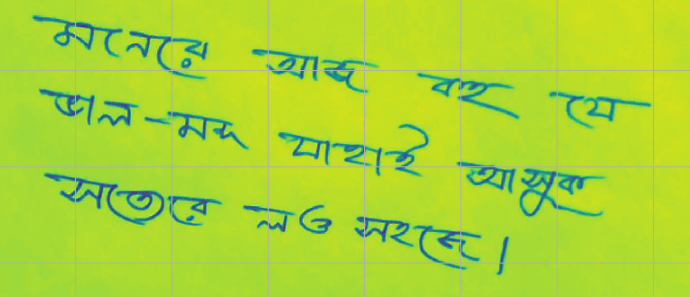 মনেরে আজ কহ যে
ভাল-মন্দ যাহাই আসুক
সত্যেরে লও সহজে।